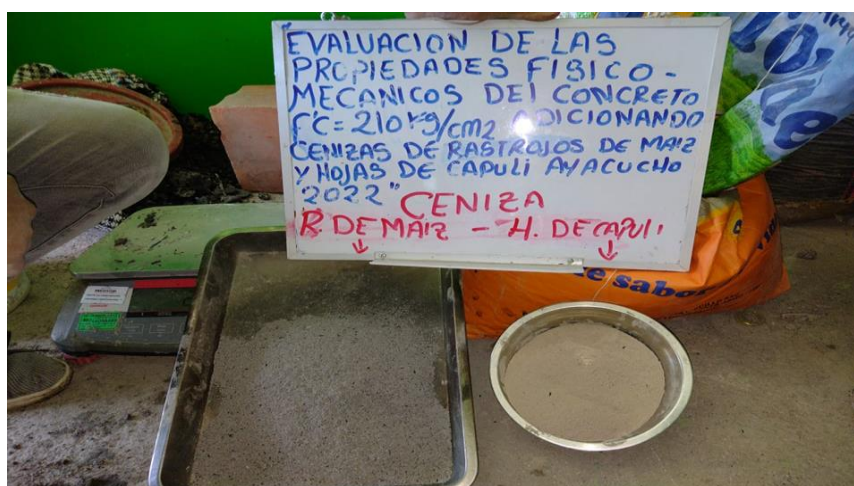 EVALUACION DE LAS
PROPIEDADES FISICO-
MECANICOS DEL CONCRETO
F'C=210 kg/cm2 ADICIONANDO
CENIZAS DE RASTROJOS DE MAIZ
Y HOJAS DE CAPULI AYACUCHO
"2022"
CENIZA
R. DE MAIZ - H. DE CAPULI
e sabo